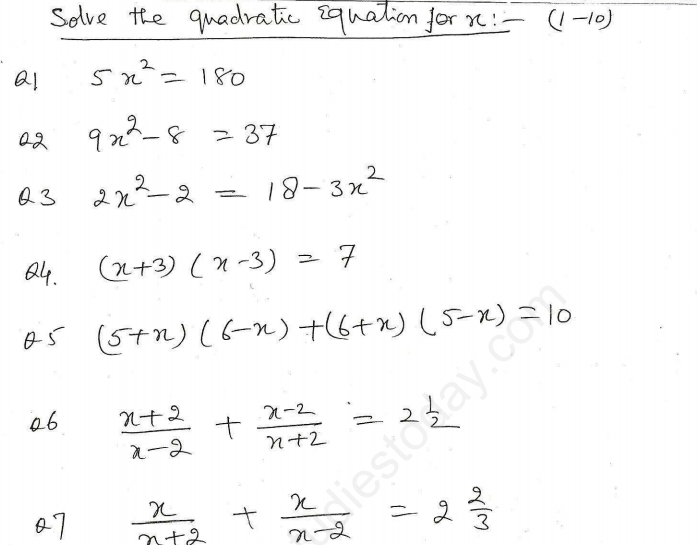 Solve the quadratic Equation for x:- (1-10)
Q1 5x² = 180
Q2 9x²-8 = 37
Q3 2x²-2 = 18-3x²
Q4. (x+3)(x-3) = 7
Q5 (5+x)(6-x)+(6+x)(5-x)=10
Q6 (x+2)/(x-2) + (x-2)/(x+2) = 2 1/2
Q7 x/(x+2) + x/(x-2) = 2 2/3